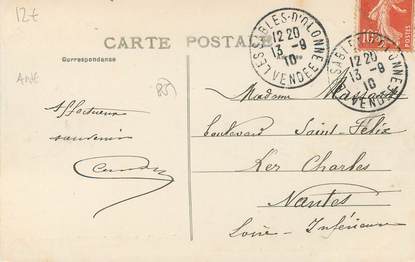 12€
CARTE POSTALE
Correspondance
ANE
85
Affectueux
souvenir
LES SABLES-D'OLONNE
12 20
13 -9
10
VENDÉE
SABLES-D'OLONNE
12 20
13 -9
10
VENDÉE
10
Madame
boulevard Saint-Félix
Ker Charles
Nantes
Loire-Inférieure